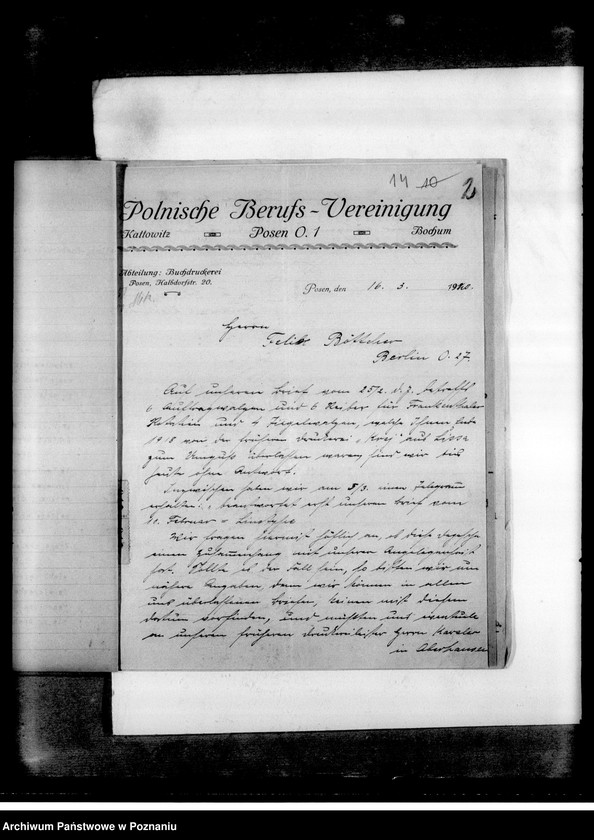 14 10 2
Polnische Berufs-Vereinigung
Kattowitz Posen O. 1 Bochum
Abteilung: Buchdruckerei
Posen, Halbdorfstr. 20.
Posen, den 16. 3. 1920.
Herrn
Felix Böttcher
Berlin O. 27.
Auf unseren Brief vom 25/2. d. J. betreffs
6 Auftragwalzen und 6 Reiber für Frankenthaler
Rotation und 4 Tiegelwalzen, welche Ihnen Ende
1918 von der früheren Druckerei „Kraj" aus Lissa
zum Umguß überlassen waren, sind wir bis
heute ohne Antwort.
Inzwischen haben wir am 8/3. einen Telegram
erhalten: beantwortet erst unseren Brief vom
10. Februar =
Wir fragen hiermit höflich an, ob diese Depesche
einen Zusammenhang mit unserer Angelegenheit
hat. Sollte es der Fall sein, so bitten wir um
nähere Angaben, denn wir können in allen
uns überlassenen Briefen, keinen mit diesem
Datum vorfinden, und müßten uns eventuell
an unseren früheren Druckereileiter Herrn
in Oberhausen
Archiwum Państwowe w Poznaniu